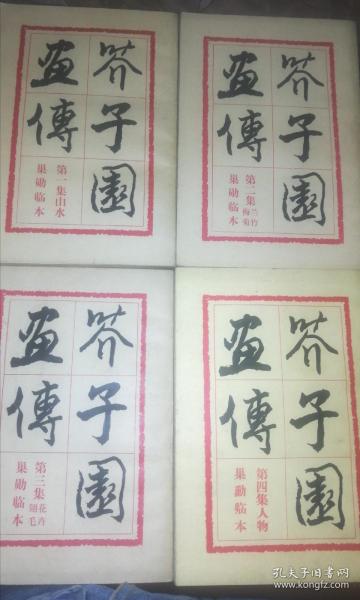 芥子園
畫傳
第一集山水
巢勋临本
芥子園
畫傳
第二集兰竹梅菊
巢勋临本
芥子園
畫傳
第三集花卉翎毛
巢勋临本
芥子園
畫傳
第四集人物
巢勳临本
孔夫子旧书网
kongfz.com